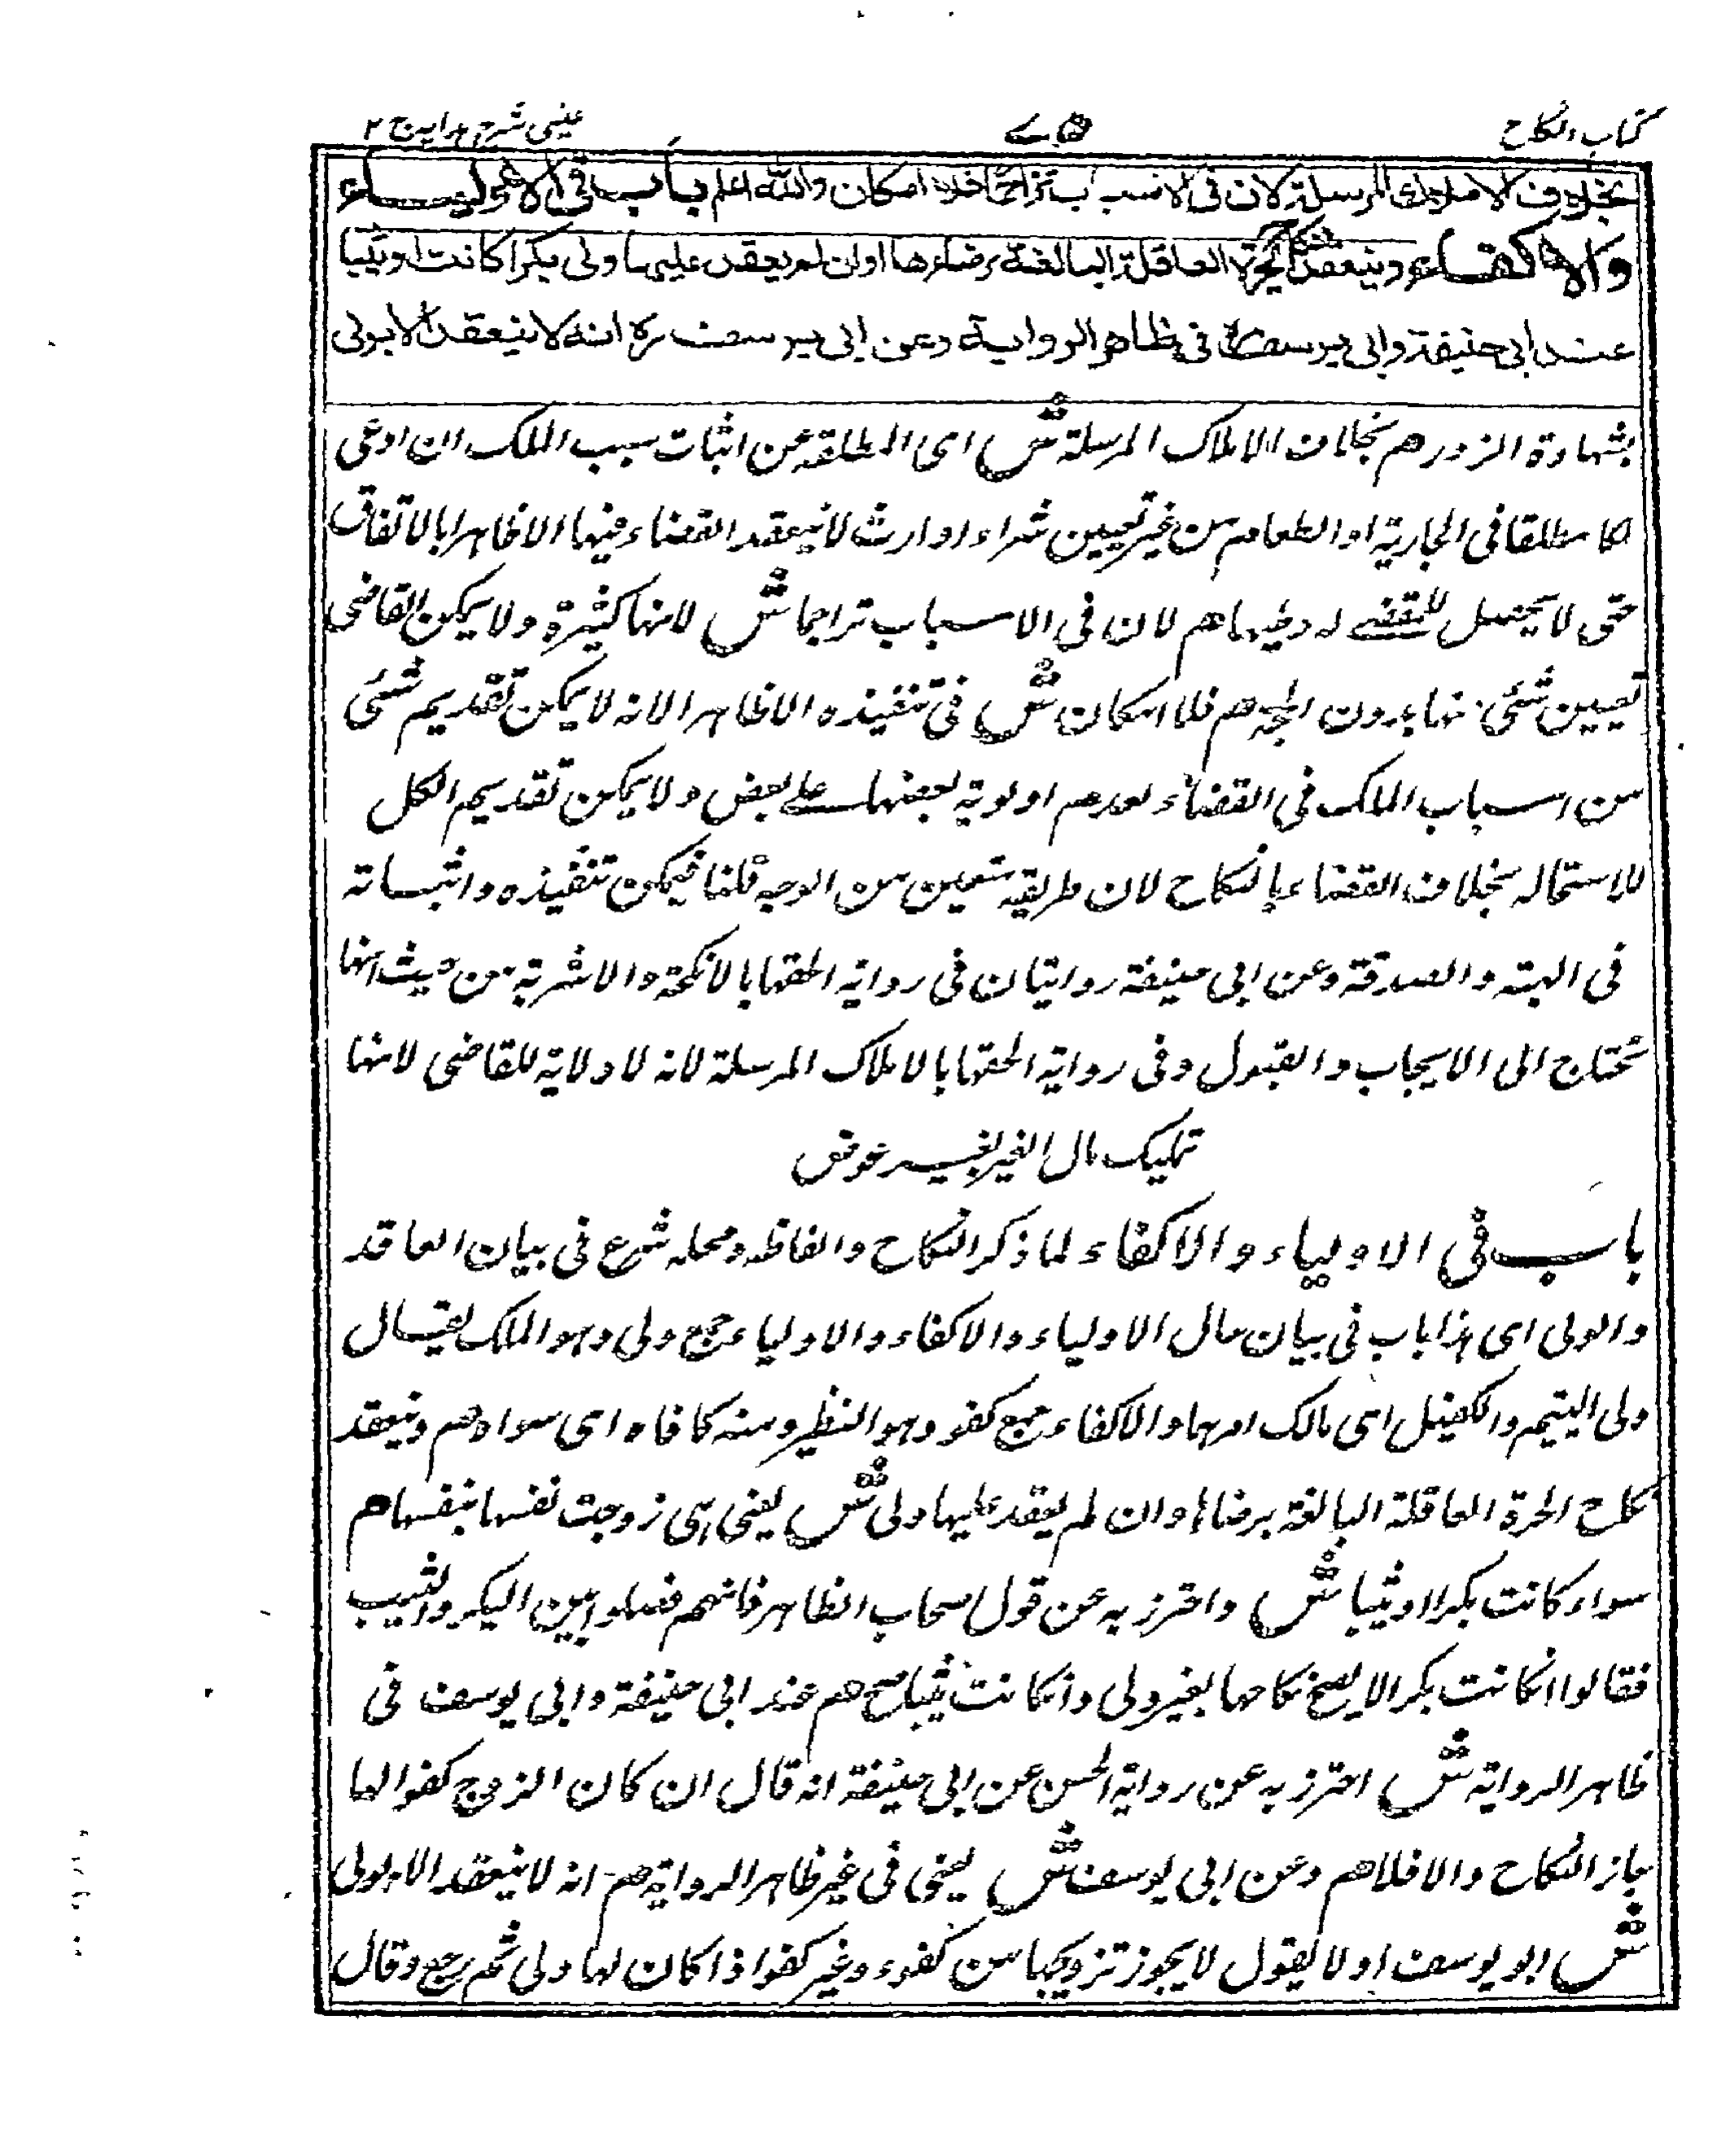 كتاب النكاح
عينى شرح هدايه ج ٢
بخلاف الاملاك المرسلة لان فى الاسباب تزاحما فلا امكان والله اعلم باب فى الاولياء
والاكفاء وينعقد نكاح الحرة العاقلة البالغة برضاءها وان لم يعقد عليها ولى بكرا كانت او ثيبا
عند ابى حنيفة وابى يوسف فى ظاهر الرواية وعن ابى يوسف ره انه لا ينعقد الا بولى
بشهادة الزور هم بخلاف الاملاك المرسلة ش اى المطلقة عن اثبات سبب الملك ان ادعى
ملكا مطلقا فى الجارية او الطعام من غير تعيين شراء او ارث لا ينعقد القضاء فيها الا ظاهرا بالاتفاق
حتى لا يحل للمقضى له وطيها هم لان فى الاسباب تزاحما ش لانها كثيرة ولا يمكن القاضى
تعيين شئى منها بدون الحجة هم فلا امكان ش فى تنفيذه الا ظاهرا لانه لا يمكن تقديم شئى
من اسباب الملك فى القضاء لعدم اولوية بعضها على بعض ولا يمكن تقديم الكل
للاستحالة بخلاف القضاء بالنكاح لان طريقه متعين من الوجه قلنا فيمكن تنفيذه واثباته
فى الهبة والصدقة وعن ابى حنيفة روايتان فى رواية الحقها بالانكحة والاشربة من حيث انها
تحتاج الى الايجاب والقبول وفى رواية الحقها بالاملاك المرسلة لانه لا ولاية للقاضى لانها
تمليك مال الغير بغير عوض
باب فى الاولياء والاكفاء لما ذكر النكاح والفاظه ومحله شرع فى بيان العاقد
والولى اى هذا باب فى بيان حال الاولياء والاكفاء والاولياء جمع ولى وهو الملك يقال
ولى اليتيم والكفيل اى مالك امرهما والاكفاء جمع كفو وهو النظير ومنه كافاه اى سواه هم وينعقد
نكاح الحرة العاقلة البالغة برضائها وان لم يعقد عليها ولى ش يعنى اى زوجت نفسها بنفسها هم
سواء كانت بكرا او ثيبا ش واحترز به عن قول اصحاب الظاهر فانهم فصلوا بين البكر والثيب
فقالوا انكانت بكرا لا يصح نكاحها بغير ولى وانكانت ثيبا صح هم عند ابى حنيفة وابى يوسف فى
ظاهر الرواية ش احترز به عن رواية الحسن عن ابى حنيفة انه قال ان كان الزوج كفوا لها
جاز النكاح والا فلا هم وعن ابى يوسف ش يعنى فى غير ظاهر الرواية هم انه لا ينعقد الا بولى
ش ابو يوسف اولا يقول لا يجوز تزويجها من كفوء وغير كفو اذا كان لها ولى ثم رجع وقال